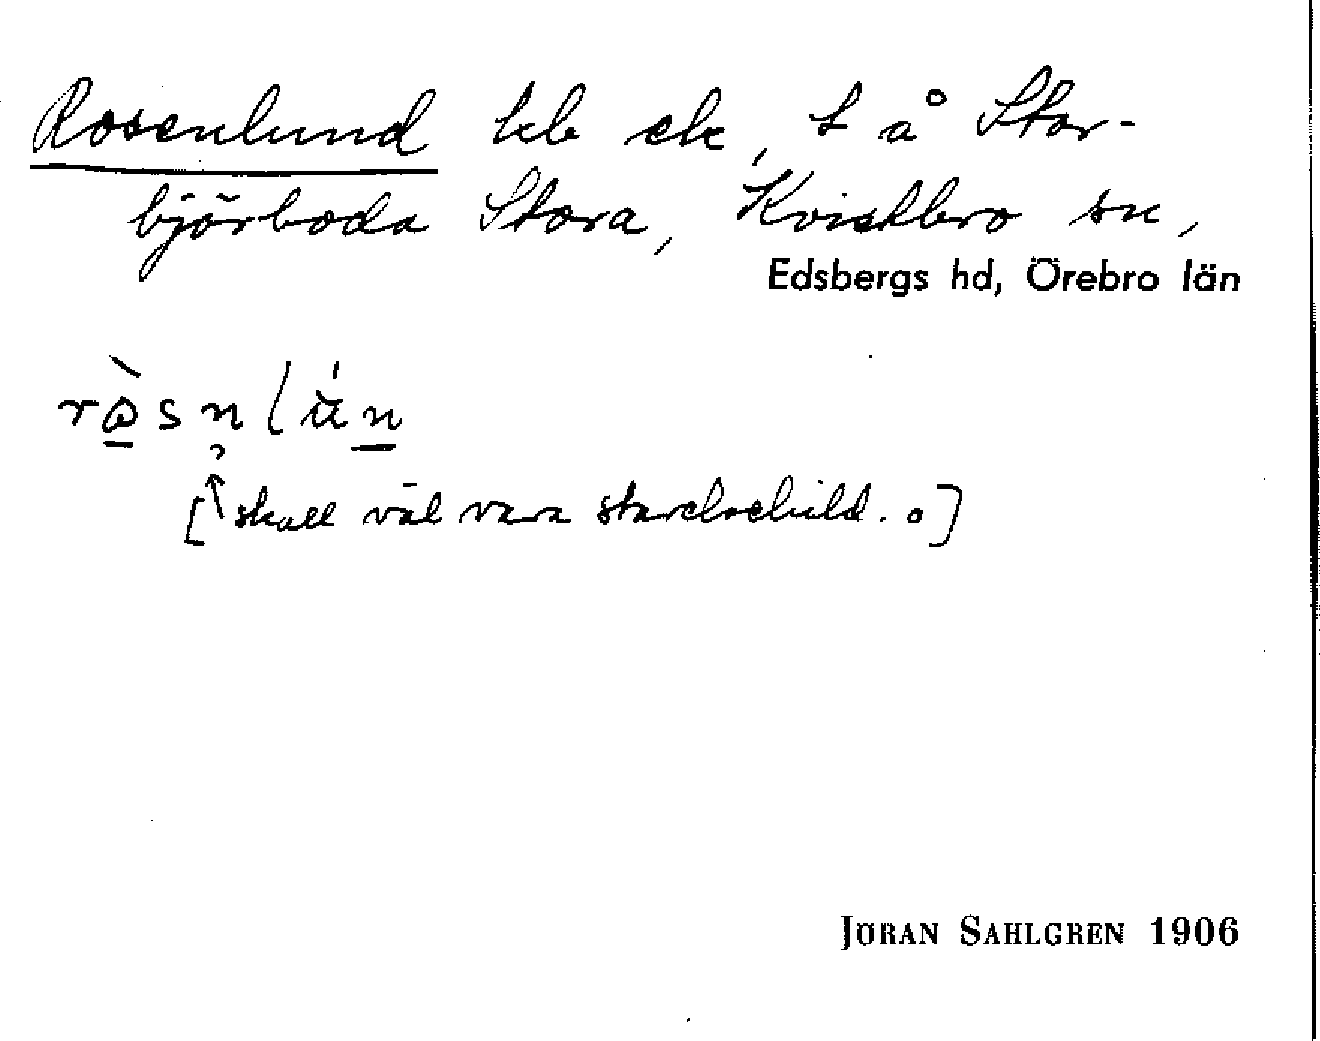 Rosenlund hb ek, t å Stor-
björboda Stora, Kvistbro sn,
Edsbergs hd, Örebro län
[skall väl vara stavelsebild.]
JÖRAN SAHLGREN 1906